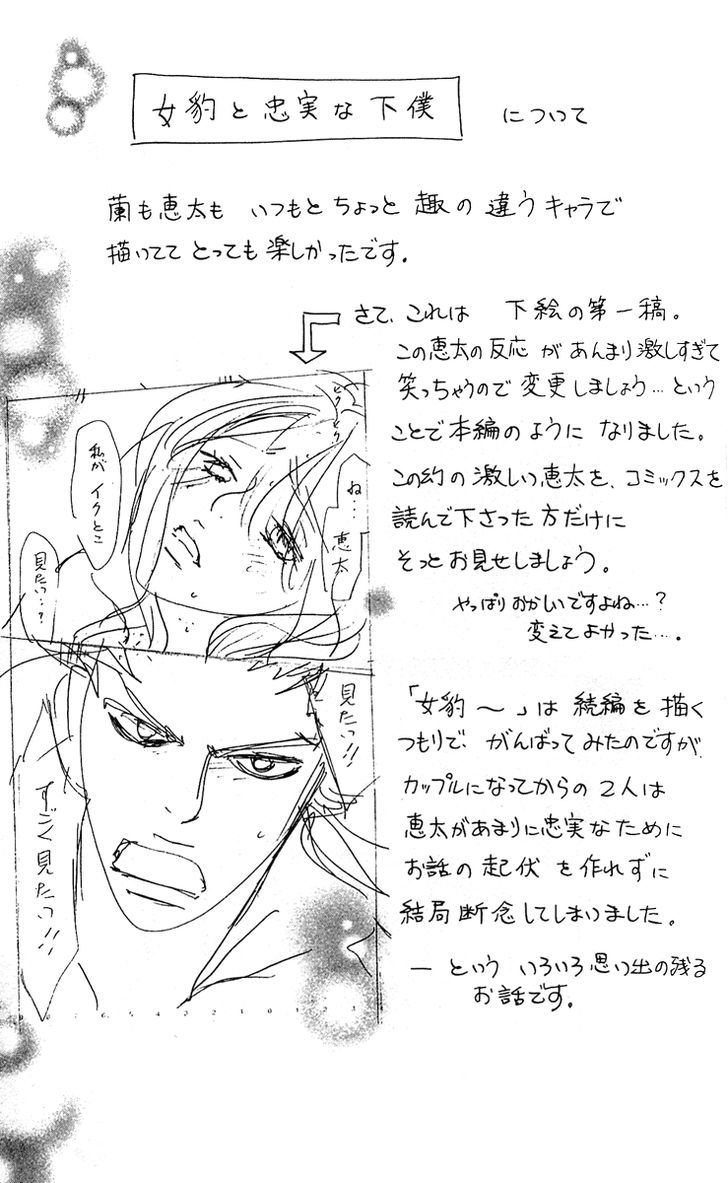 女豹と忠実な下僕 について
蘭も恵太も いつもとちょっと 趣の 違うキャラで
描いてて とっても楽しかったです。
さて、これは 下絵の第一稿。
この恵太の反応 が あんまり激しすぎて
笑っちゃうので 変更しましょう…という
ことで本編のように なりました。
この幻の激しい恵太を、コミックスを
読んで下さった方だけに
そっとお見せしましょう。
やっぱりおかしいですよね…?
変えてよかった…。
ね…
恵太
私が
イクとこ
見たい…?
見たいっ!!
すごく見たいっ!!
「女豹〜」は 続編を描く
つもりで、がんばってみたのですが
カップルになってからの 2人は
恵太があまりに忠実なために
お話の 起伏 を作れずに
結局断念してしまいました。
— という いろいろ思い出の残る
お話です。